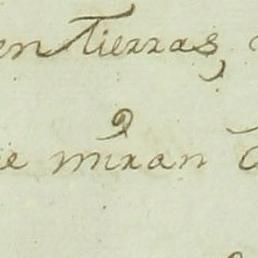 en Tierras,
e miran